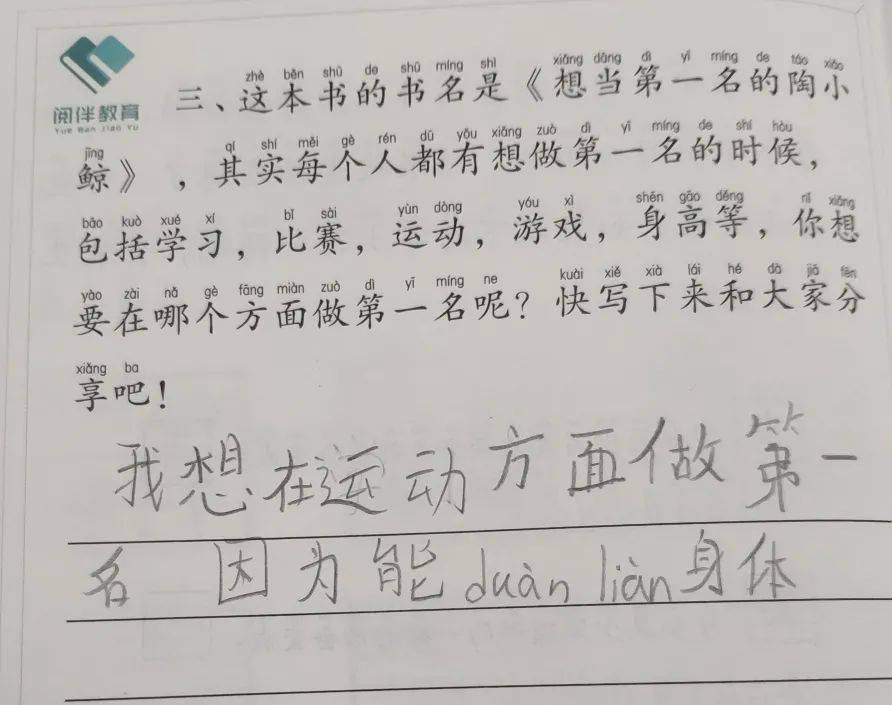 阅伴教育
Yue Ban Jiao Yu
zhè běn shū de shū míng shì xiǎng dāng dì yī míng de táo xiǎo
三、这本书的书名是《想当第一名的陶小
jīng qí shí měi gè rén dū yǒu xiǎng zuò dì yī míng de shí hòu
鲸》，其实每个人都有想做第一名的时候，
bāo kuò xué xí bǐ sài yùn dòng yóu xì shēn gāo děng nǐ xiǎng
包括学习，比赛，运动，游戏，身高等，你想
yào zài nǎ gè fāng miàn zuò dì yī míng ne kuài xiě xià lái hé dà jiā fēn
要在哪个方面做第一名呢？快写下来和大家分
xiǎng ba
享吧！
我想在运动方面做第一
名 因为能duàn liàn身体